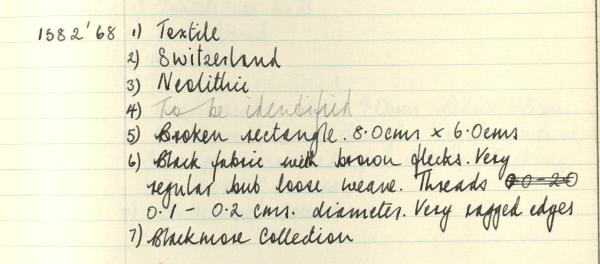 1582'68 1) Textile
2) Switzerland
3) Neolithic
4) To be identified
5) Broken rectangle. 8.0cms x 6.0cms
6) Black fabric with brown flecks. Very
regular but loose weave. Threads
0.1 - 0.2 cms. diameter. Very ragged edges
7) Blackmore Collection